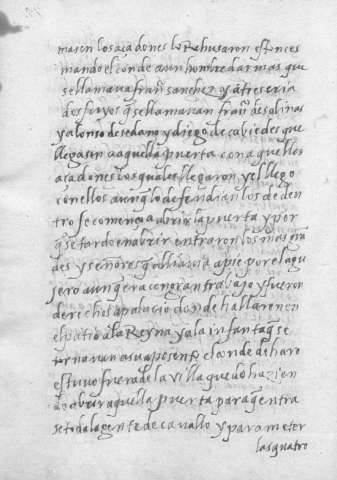 masen los açadones lo rrehusaron estonces
mando el conde a un hombre darmas que
se llamava franco sanchez y a tres cria
dos suyos q se llamavan franco de salinas
y alonso de sedano y diego de cabiedes que
llegasen a aquella puerta con aquellos
açadones los quales llegaron y el llego
con ellos aunq lo defendian los de den
tro se començo a abrir la puerta y por
q se tardo en abrir entraron los mas gra
des y señores q alli avia a pie por el agu
jero aunq era con gran trabajo y fueron
derechos a palacio donde hallaron en
el patio a la Reyna y a la infanta q se
tornavan a su aposento el conde de haro
estuvo fuera de la villa que do hazien
do abrir aquella puerta para q entra
se toda la gente de cavallo y para meter
las quatro